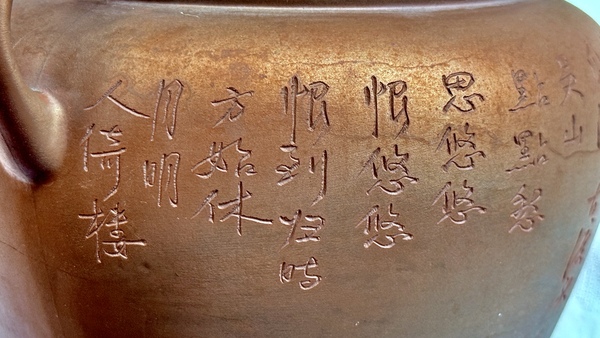 吴山
點點愁
思悠悠
恨悠悠
恨到归时
方始休
月明
人倚楼